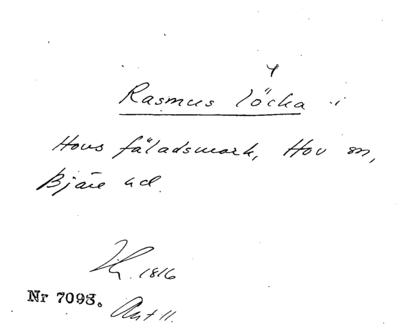 Rasmus löcka i
Hovs fäladsmark, Hov sn,
Bjäre hd.
1816
Nr 7093.
Avt 11.